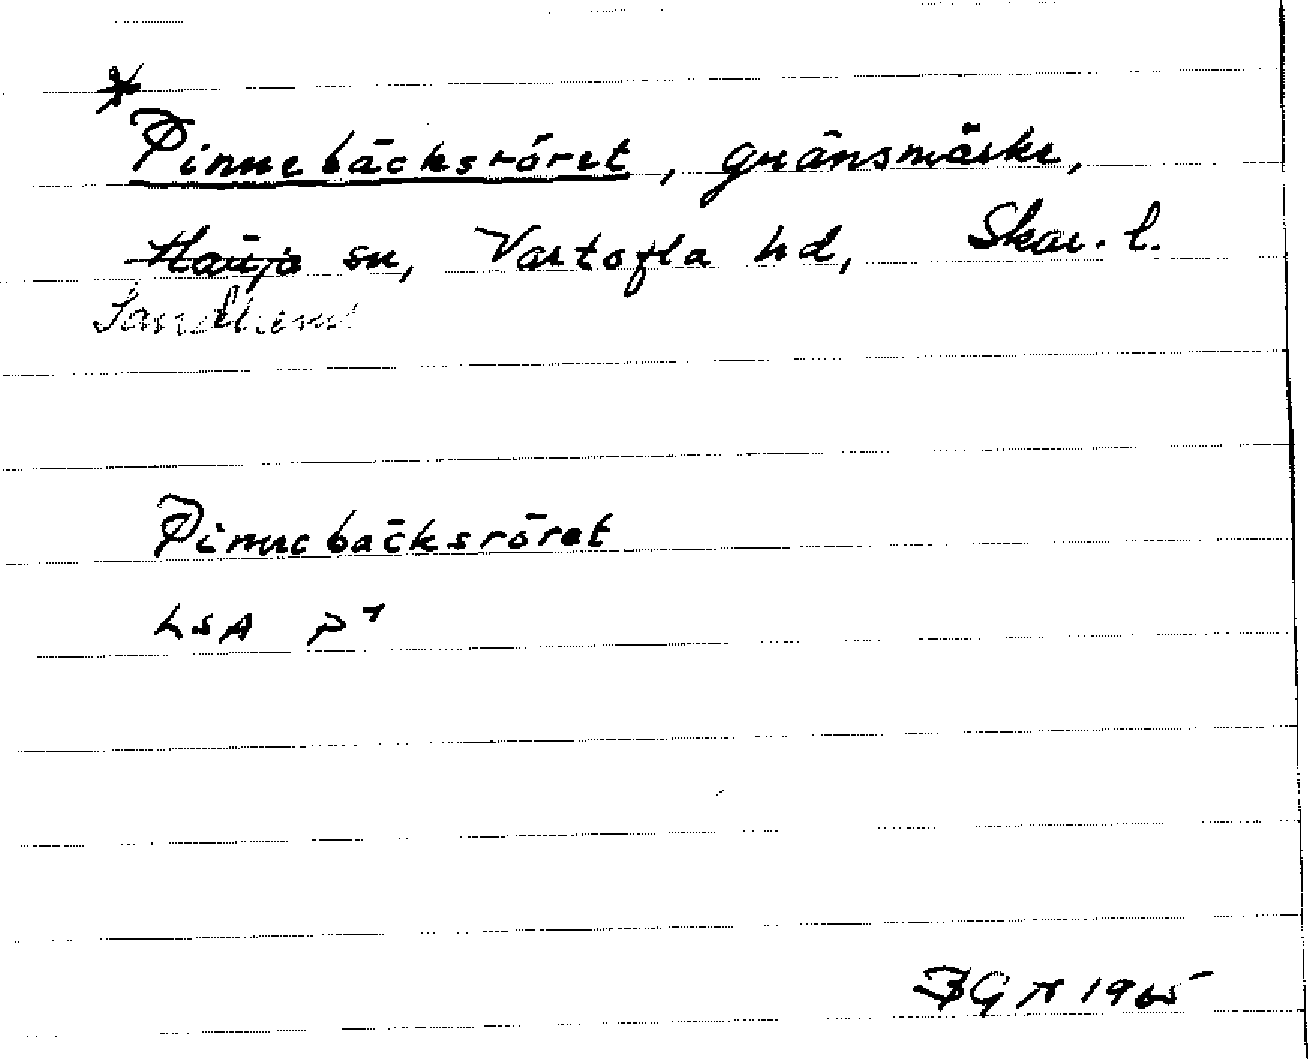 *
Pinnebäcksröret, gränsmärke,
Härja sn, Vartofta hd, Skar. l.
Sandhem
Pinnebäcksröret
LSA P1
1965